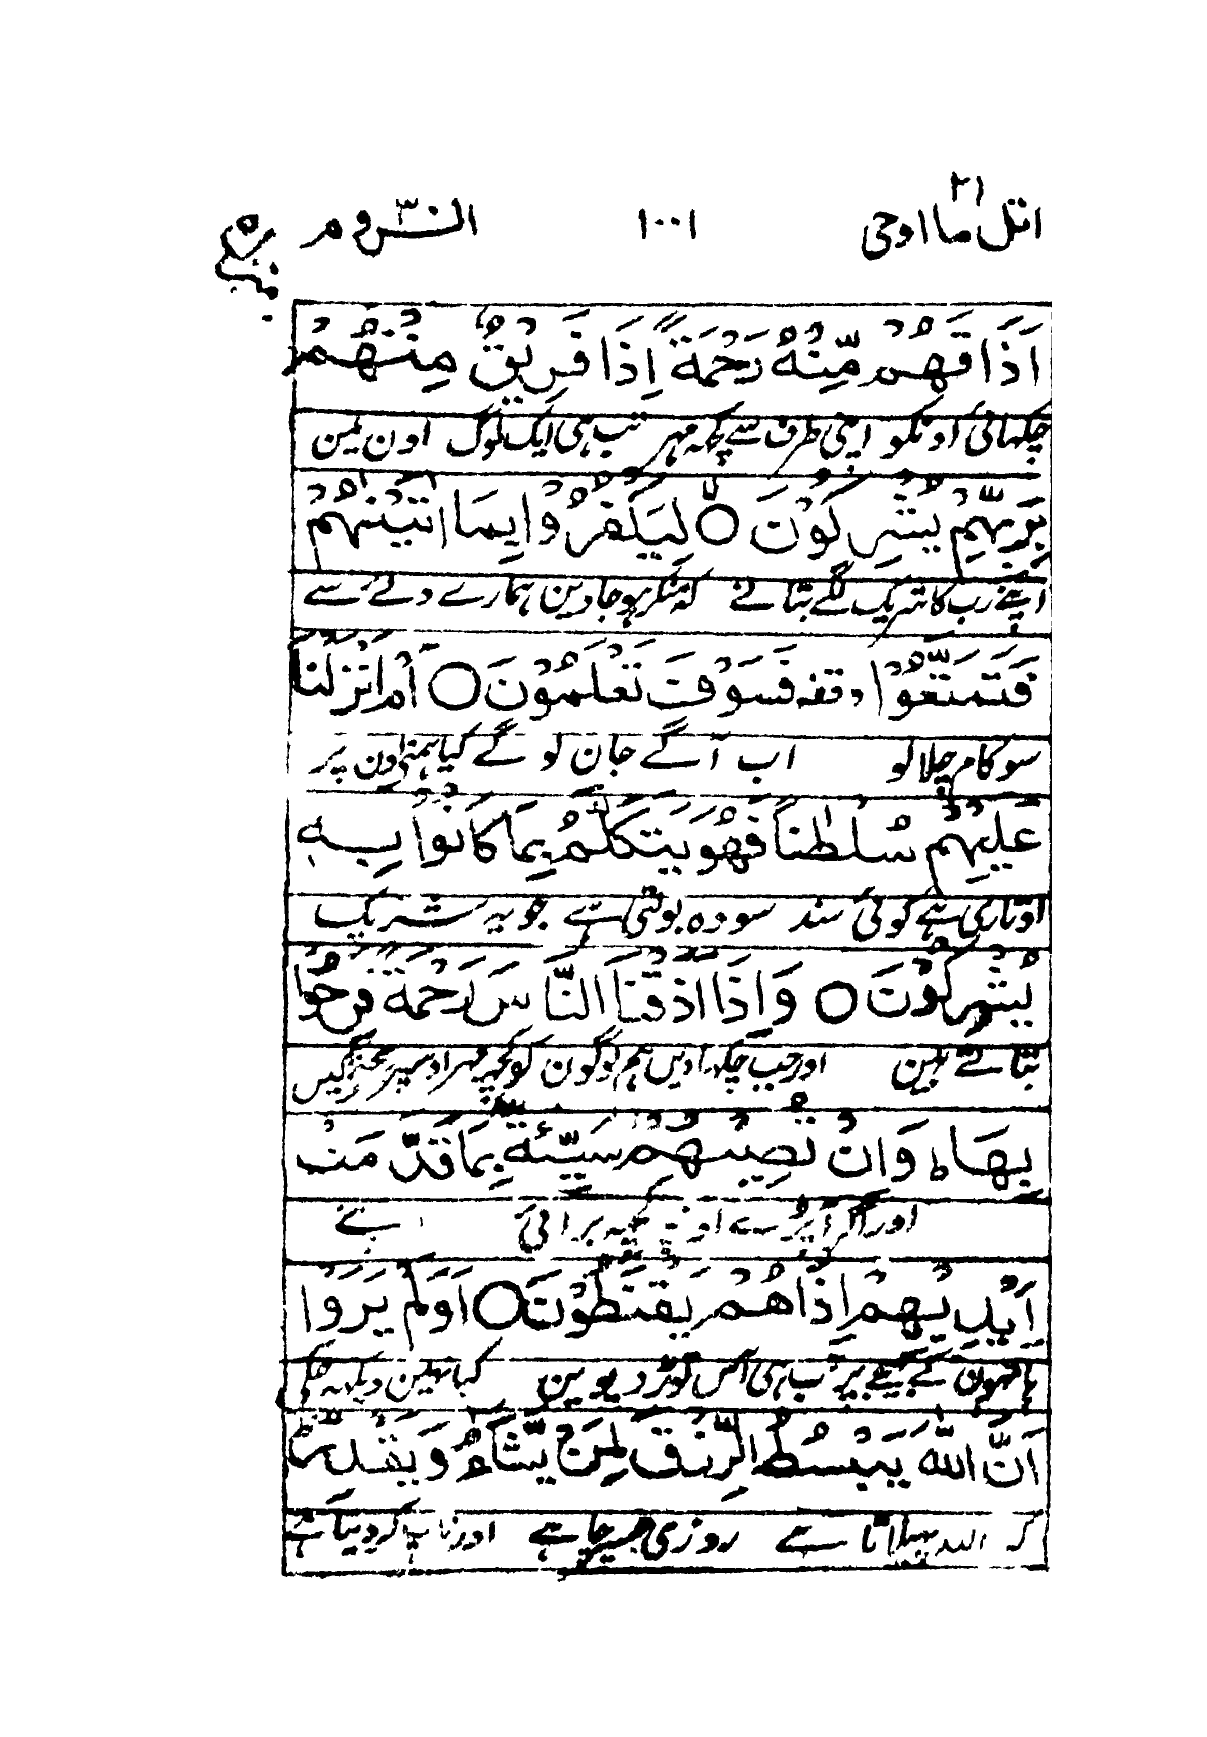 اتل ما اوحی ۲۱ ۱۰۰۱ الروم ۳۰
اَذَاقَهُمْ مِّنْهُ رَحْمَةً اِذَا فَرِیْقٌ مِنْهُمْ
چکہائی اونکو اپنی طرف سے کچہ مہر تب ہی ایک لوگ اون مین
بِرَبِّهِمْ یُشْرِكُوْنَ ○ لِیَكْفُرُوْا بِمَا اٰتَیْنٰهُمْ
اپنے رب کا شریک لگے بتانے کہ منکر ہو جاوین ہمارے دئے سے
فَتَمَتَّعُوْا وقفه فَسَوْفَ تَعْلَمُوْنَ ○ اَمْ اَنْزَلْنَا
سو کام چلا لو اب آگے جان لو گے کیا ہمنے اون پر
عَلَیْهِمْ سُلْطٰنًا فَهُوَ یَتَكَلَّمُ بِمَا كَانُوْا بِهٖ
اوتاری ہے کوئی سند سو وہ بولتی ہے جو یہ شریک
یُشْرِكُوْنَ ○ وَاِذَا اَذَقْنَا النَّاسَ رَحْمَةً فَرِحُوْا
بتاتے ہین اور جب چکہاوین ہم لوگون کو کچہ مہر اوسپر
بِهَا ط وَاِنْ تُصِبْهُمْ سَیِّئَةٌ بِمَا قَدَّمَتْ
اور اگر آپڑے کچہ برائی
اَیْدِیْهِمْ اِذَا هُمْ یَقْنَطُوْنَ ○ اَوَلَمْ یَرَوْا
ہاتہون کے بھیجے پر تب ہی آس توڑ دیوین کیا نہین دیکہہ چکے
اَنَّ اللّٰهَ یَبْسُطُ الرِّزْقَ لِمَنْ یَّشَآءُ وَیَقْدِرُ
کہ اللہ پہیلاتا ہے روزی جسپر چاہے اور ناپ کر دیتا ہے